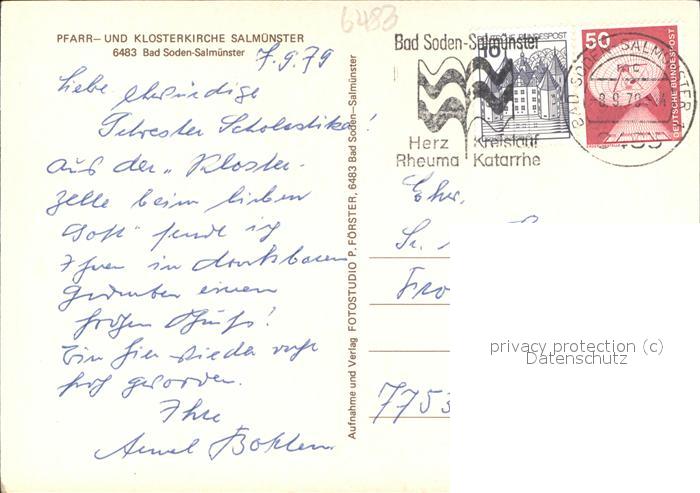 6483
PFARR– UND KLOSTERKIRCHE SALMÜNSTER
6483 Bad Soden-Salmünster
7.9.79
Liebe ehrwürdige
Schwester Scholastika!
aus der „Kloster-
zelle beim lieben
Gott" sende ich
Ihnen in dankbarem
Gedenken einen
großen Gruß!
Bin hier wieder recht
froh geworden.
Ihre
Aufnahme und Verlag FOTOSTUDIO P. FÖRSTER, 6483 Bad Soden–Salmünster
Bad Soden-Salmünster
Herz Kreislauf
Rheuma Katarrhe
10
DEUTSCHE BUNDESPOST
50
DEUTSCHE BUNDESPOST
BAD SODEN-SALMÜNSTER
-8.9.79
Ehrw.
Sr.
7753
privacy protection (c)
Datenschutz